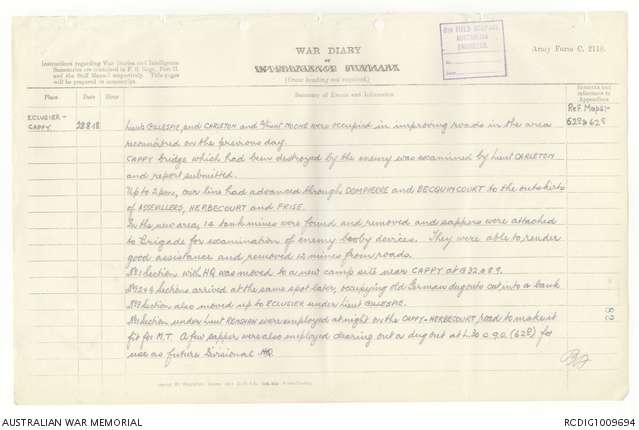 WAR DIARY
or
INTELLIGENCE SUMMARY
(Erase heading not required)
Army Form C. 2118.
Instructions regarding War Diaries and Intelligence
Summaries are contained in F. S. Regs., Part II.
and the Staff Manual respectively. Title pages
will be prepared in manuscript.
FIELD COMPANY
AUSTRALIAN
ENGINEERS
Place
Date
Hour
Summary of Events and Information
Remarks and
references to
Appendices
ECLUSIER -
CAPPY
28818
Ref Maps:-
Lieuts GILLESPIE, and CARLETON and 2/Lieut ROCHE were occupied in improving roads in the area
reconnoitred on the previous day.
CAPPY bridge which had been destroyed by the enemy was examined by Lieut CARLETON
and report submitted.
Up to 2pm, our line had advanced through DOMPIERRE and BECQUINCOURT to the outskirts
of ASSEVILLERS, HERBECOURT and FRISE.
In the new area, 12 tank mines were found and removed and sappers were attached
to Brigade for examination of enemy booby devices. They were able to render
good assistance and removed 12 mines from roads.
No 1 Sections with HQ was moved to a new camp site near CAPPY at G32a89.
Sections arrived at the same spot later, occupying old German dugouts cut into a bank
Section also moved up to ECLUSIER under Lieut GILLESPIE.
Section under Lieut were employed at night on the CAPPY-HERBECOURT road to make it
fit for M.T. A few sappers were also employed clearing out a dug out at L20 c 9.0 (62D) for
use as future Divisional HQ
82
AUSTRALIAN WAR MEMORIAL
RCDIG1009694